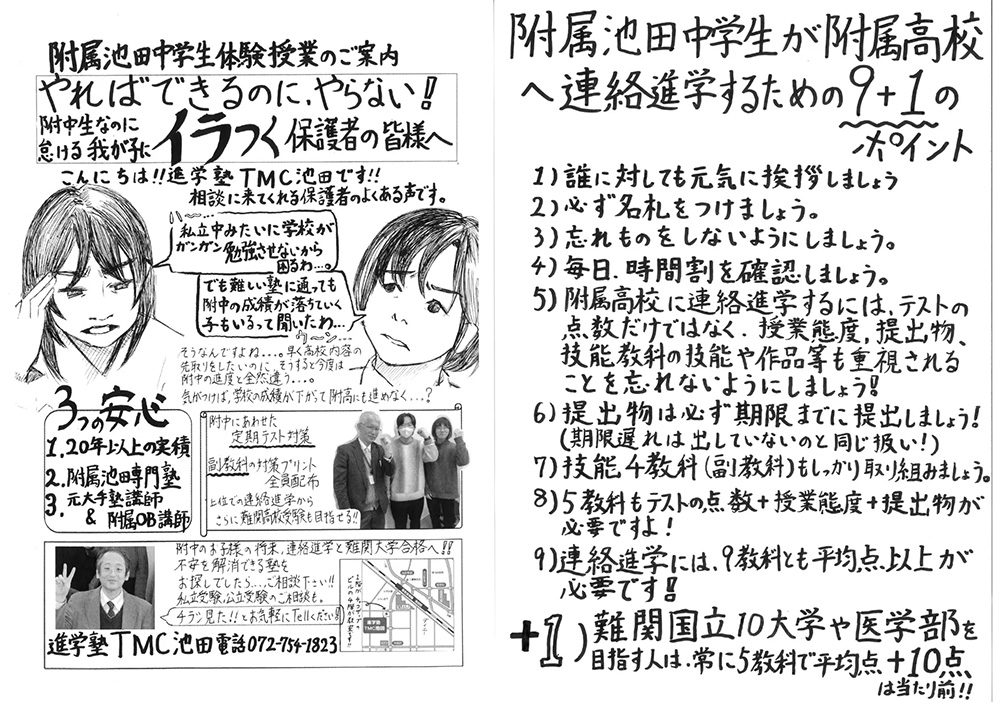 附属池田中学生体験授業のご案内
やればできるのに、やらない!
附中生なのに
怠ける我が子に
イラつく保護者の皆様へ
こんにちは!!進学塾TMC池田です!!
相談に来てくれる保護者のよくある声です。
私立中みたいに学校が
ガンガン勉強させないから
困るわ…。
でも難しい塾に通っても
附中の成績が落ちていく
子もいるって聞いたわ…
そうなんですよね…。早く高校内容の
先取りをしたいのに、そうすると今度は
附中の進度と全然違う…。
気がつけば、学校の成績が下がって附高にも進めなく…?
3つの安心
1.20年以上の実績
2.附属池田専門塾
3.元大手塾講師
&附属OB講師
附中にあわせた
定期テスト対策
副教科の対策プリント
全員配布
上位での連絡進学から
さらに難関高校受験も目指せる!!
附中のお子様の将来、連絡進学と難関大学合格へ!!
不安を解消できる塾を
お探しでしたら…ご相談下さい!!
私立受験、公立受験のご相談も。
チラシ見た!!とお気軽にTellください!
進学塾
TMC池田
進学塾TMC池田 電話072-754-1823
附属池田中学生が附属高校
へ連絡進学するための9+1の
ポイント
1)誰に対しても元気に挨拶しましょう
2)必ず名札をつけましょう。
3)忘れものをしないようにしましょう。
4)毎日、時間割を確認しましょう。
5)附属高校に連絡進学するには、テストの
点数だけではなく、授業態度、提出物、
技能教科の技能や作品等も重視される
ことを忘れないようにしましょう!
6)提出物は必ず期限までに提出しましょう!
(期限遅れは出していないのと同じ扱い!)
7)技能4教科(副教科)もしっかり取り組みましょう。
8)5教科もテストの点数+授業態度+提出物が
必要ですよ!
9)連絡進学には、9教科とも平均点以上が
必要です!!
+1)難関国立10大学や医学部を
目指す人は、常に5教科で平均点+10点
は当たり前!!